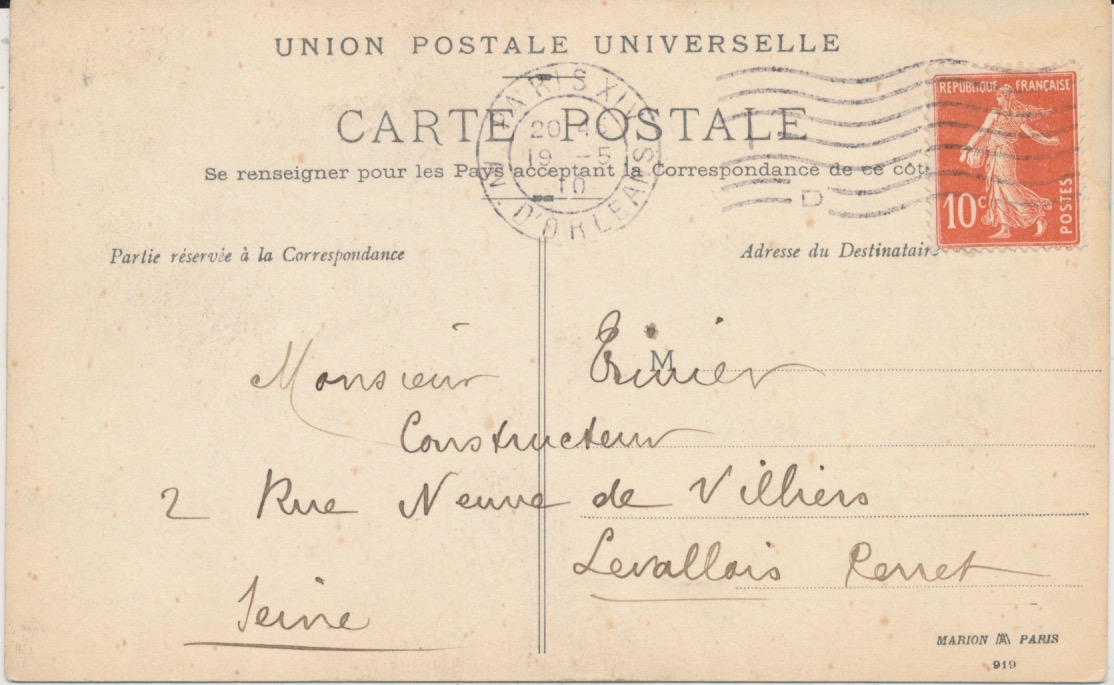 UNION POSTALE UNIVERSELLE
CARTE POSTALE
Se renseigner pour les Pays acceptant la Correspondance de ce côt
PARIS XIV
AV. D'ORLEANS
20
19 - 5
10
D
REPUBLIQUE FRANÇAISE
10c
POSTES
Partie réservée à la Correspondance
Adresse du Destinataire
M
Monsieur
Constructeur
2 Rue Neuve de Villiers
Levallois Perret
Seine
MARION PARIS
919